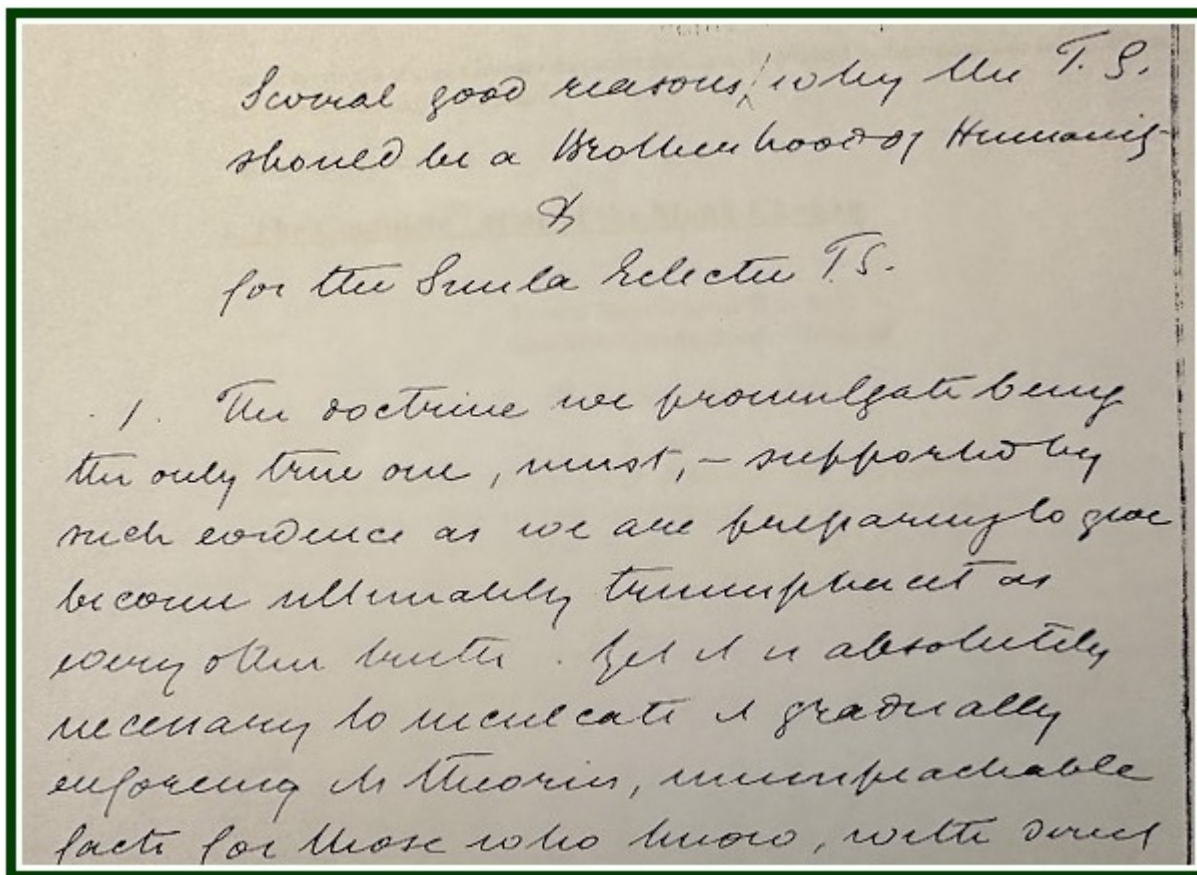 Several good reasons, why the T. S.
should be a Brotherhood of Humanity
&
for the Simla Eclectic T S.
1. The doctrine we promulgate being
the only true one, must, — supported by
such evidence as we are preparing to give
become ultimately triumphant as
every other truth. Yet it is absolutely
necessary to inculcate it gradually
enforcing its theories, unimpeachable
facts for those who know, with direct